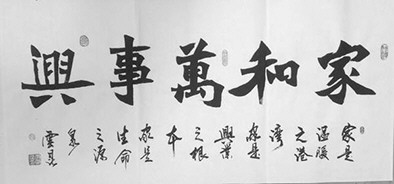 家和萬事興
家是
温暖
之港
湾
家是
興業
之根
本
家是
生命
之源
泉